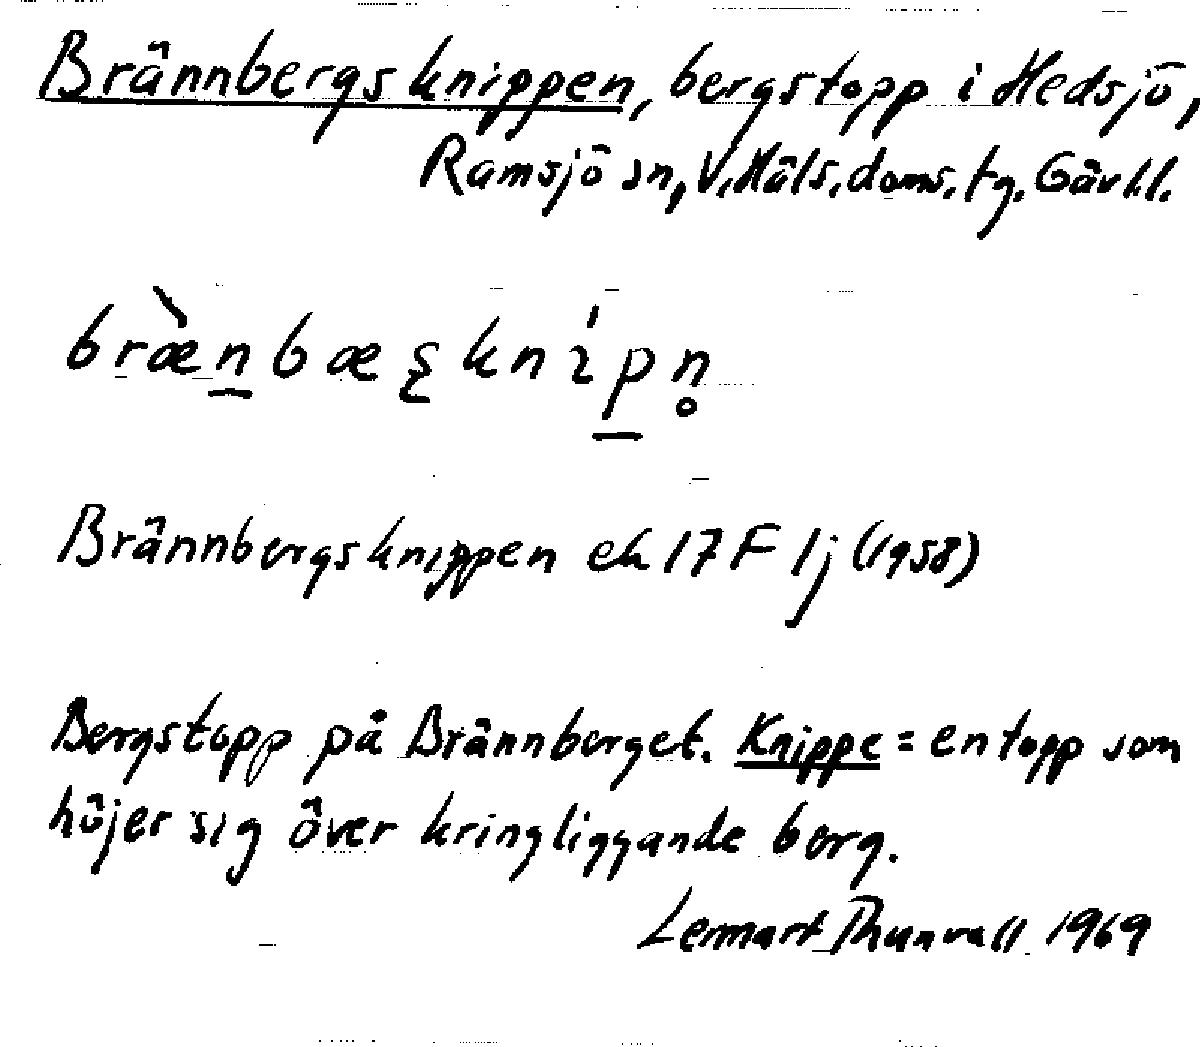 Brännbergsknippen, bergstopp i Hedsjö,
Ramsjö sn, V. Häls. doms. tg. Gävl.l.
bræ̀n̠bæʂkníp̠n̥
Brännbergsknippen ek 17F 1j (1958)
Bergstopp på Brännberget. Knippe = en topp som
höjer sig över kringliggande berg.
Lennart Thunvall 1969